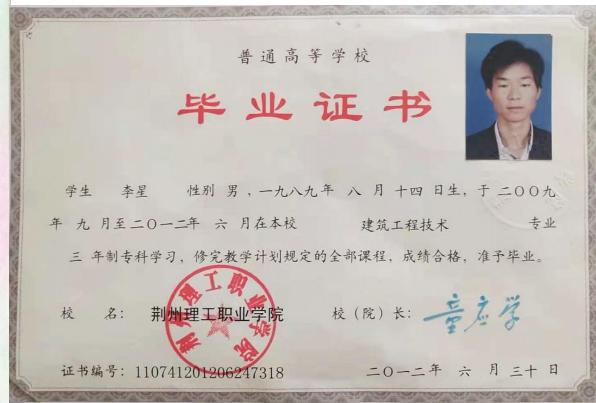 普通高等学校
毕业证书
学生 李星 性别 男 ，一九八九年 八 月 十四 日生，于 二〇〇九
年 九 月至二〇一二年 六 月在本校 建筑工程技术 专业
三 年制专科学习，修完教学计划规定的全部课程，成绩合格，准予毕业。
校 名： 荆州理工职业学院 校（院）长： 童应学
荆州理工职业学院
证书编号：110741201206247318 二〇一二年 六 月 三十 日